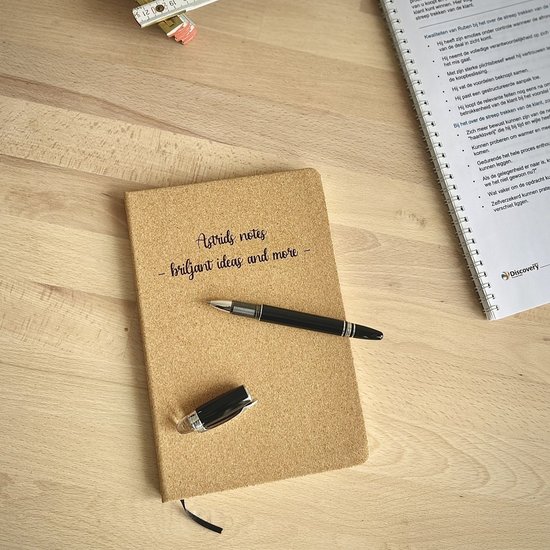 Astrids notes
- briljant ideas and more -
Kwaliteiten van Ruben bij het over de streep trekken van de
Hij heeft zijn emoties onder controle wanneer de afrond
van de deal in zicht komt.
Hij neemt de volledige verantwoordelijkheid
het mis gaat.
Met zijn sterke plichtsbesef weet hij
de koopbeslissing.
Hij vat de voordelen beknopt samen.
Hij past een gestructureerde aanpak toe.
Hij loopt de relevante feiten nog eens na
betrokkenheid van de klant bij het
Bij het over de streep trekken van de klant,
Zich meer bewust kunnen zijn van de
"haarkloverij" die hij bij tijd en wijle
Kunnen proberen om warmer en
komen.
Gedurende het hele proces
kunnen leggen.
Als de gelegenheid er naar is,
we het niet gewoon nu?"
Wat vaker om de opdracht
Zelfverzekerd kunnen
verschiet liggen.
Discovery